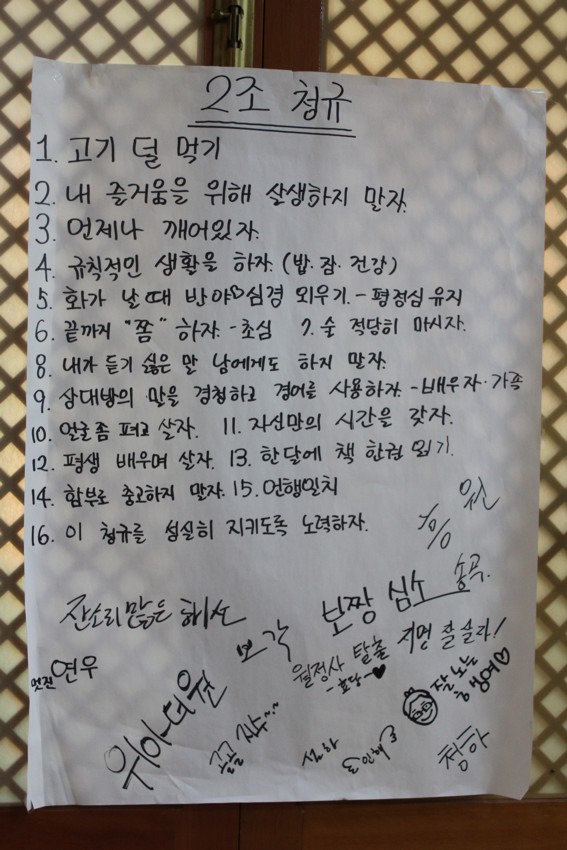 2조 청규
1. 고기 덜 먹기
2. 내 즐거움을 위해 살생하지 말자.
3. 언제나 깨어있자.
4. 규칙적인 생활을 하자. (밥.잠.건강)
5. 화가 날 때 반야♡심경 외우기. - 평정심 유지
6. 끝까지 "쫌" 하자. - 초심 7. 술 적당히 마시자.
8. 내가 듣기 싫은 말 남에게도 하지 말자.
9. 상대방의 말을 경청하고 경어를 사용하자. - 배우자·가족
10. 얼굴 좀 펴고 살자. 11. 자신만의 시간을 갖자.
12. 평생 배우며 살자. 13. 한달에 책 한권 읽기.
14. 함부로 충고하지 말자. 15. 언행일치
16. 이 청규를 성실히 지키도록 노력하자.
송곡.
잔소리 많은 혜산
보짱 심소
보각
지명 잘 살라!
월정사 탈출
-효당-♥
멋진 연우
잘 노는
위아더원
청하